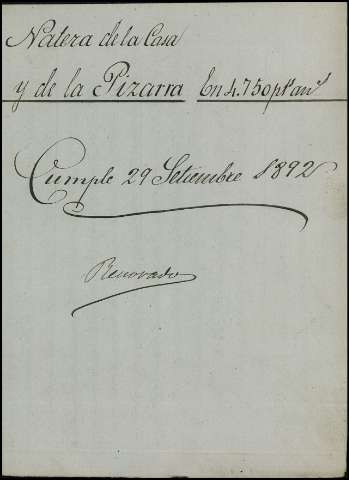 Natera de la Casa
y de la Pizarra En 4.750 pts an.s
Cumple 29 Setiembre 1892
Renovado